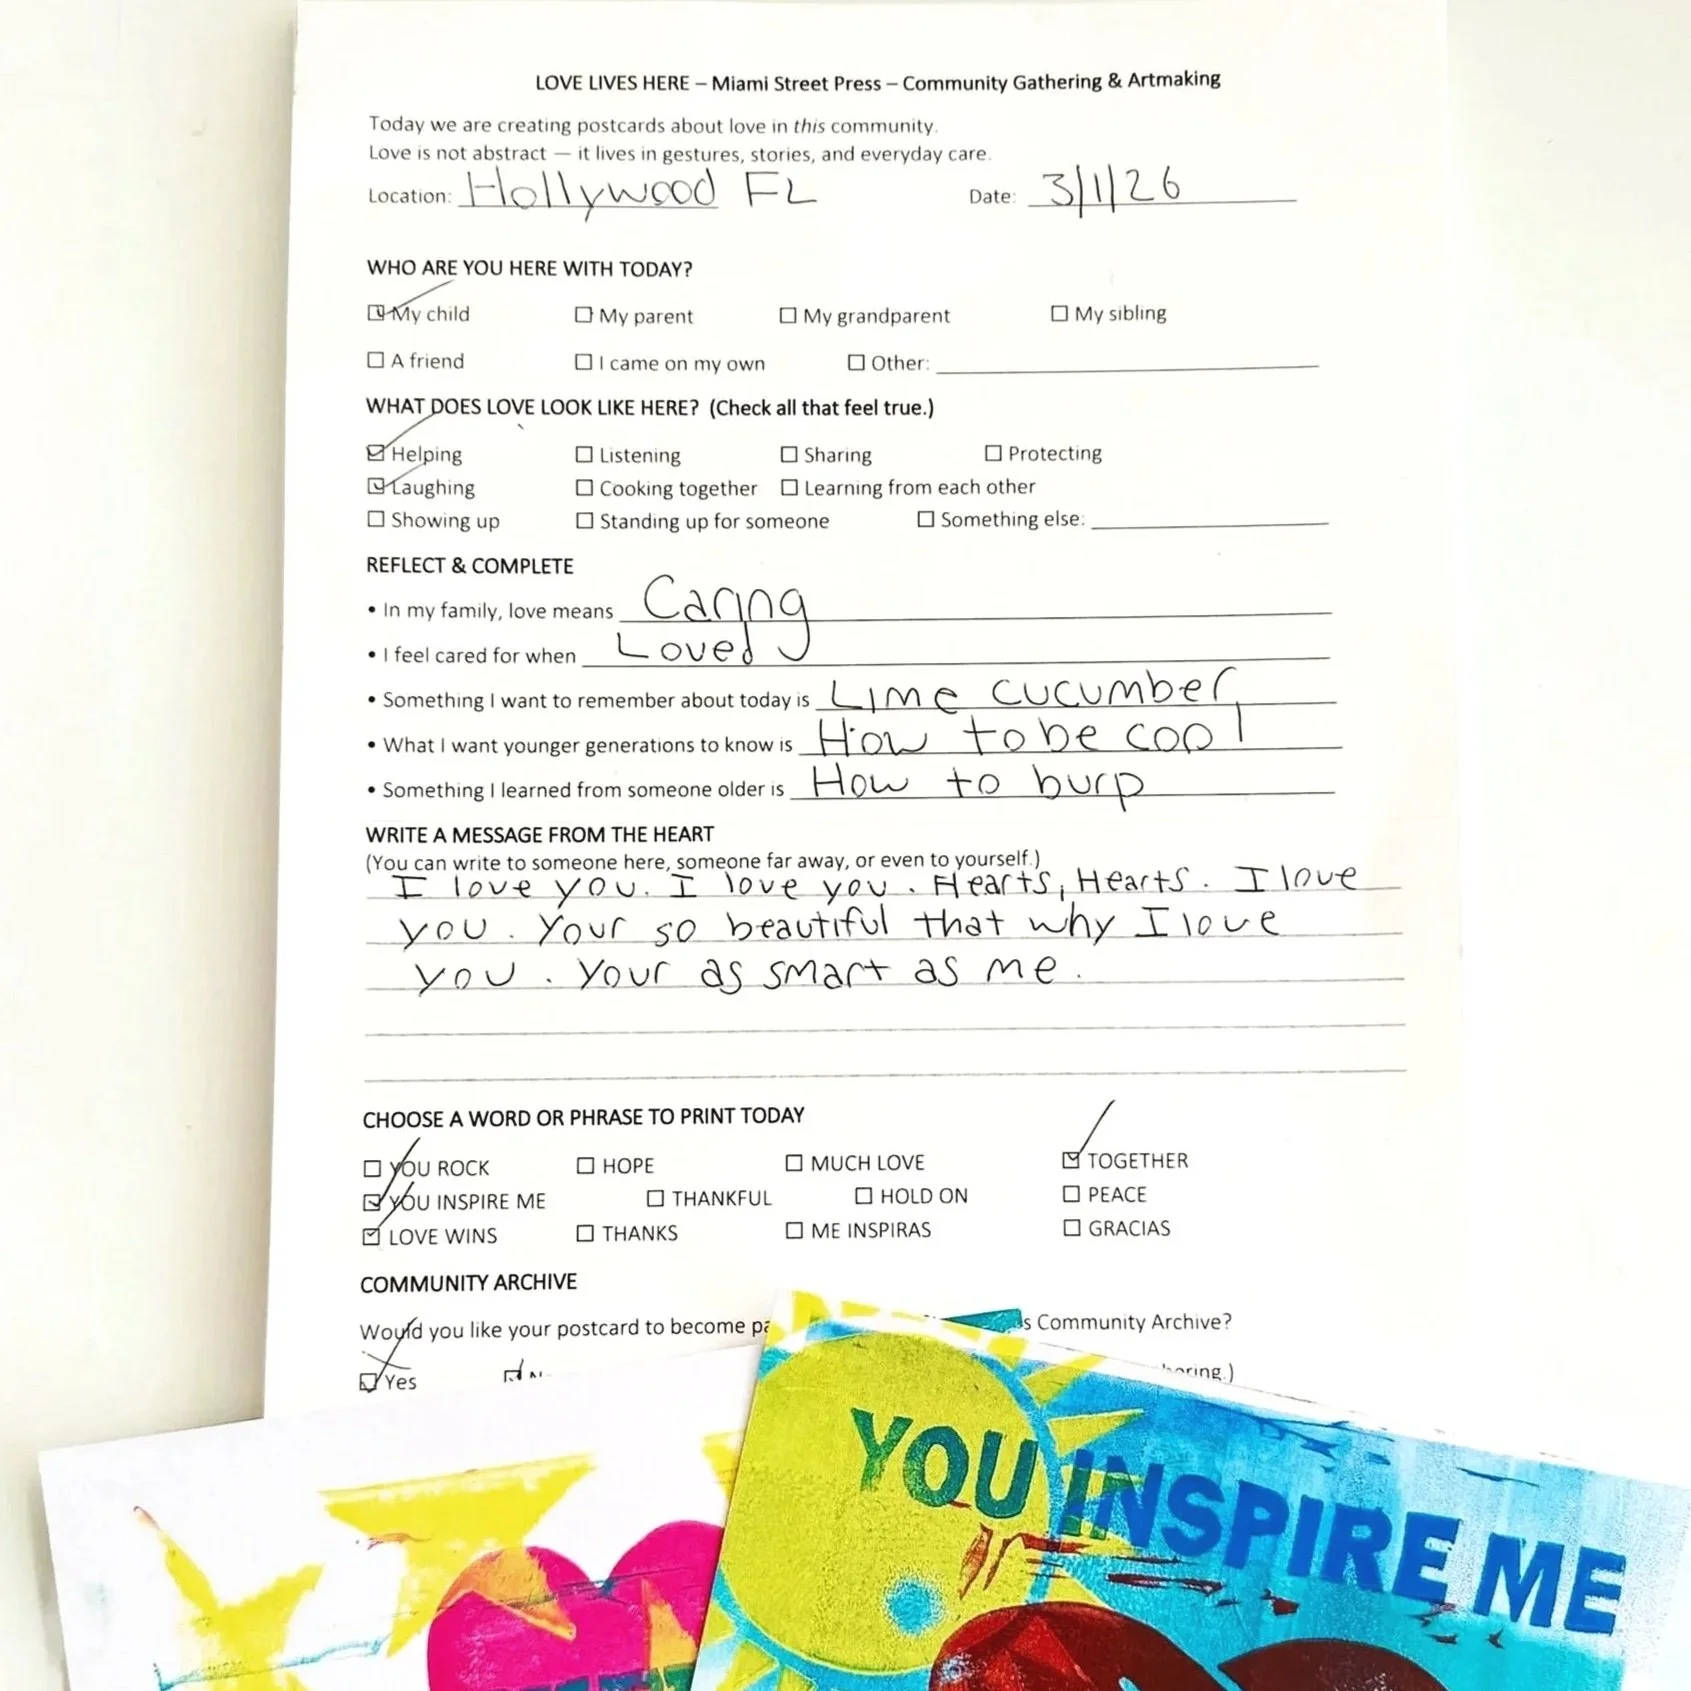 LOVE LIVES HERE – Miami Street Press – Community Gathering & Artmaking
Today we are creating postcards about love in this community.
Love is not abstract — it lives in gestures, stories, and everyday care.
Location: Hollywood FL Date: 3/1/26
WHO ARE YOU HERE WITH TODAY?
☑ My child ☐ My parent ☐ My grandparent ☐ My sibling
☐ A friend ☐ I came on my own ☐ Other:
WHAT DOES LOVE LOOK LIKE HERE? (Check all that feel true.)
☑ Helping ☐ Listening ☐ Sharing ☐ Protecting
☑ Laughing ☐ Cooking together ☐ Learning from each other
☐ Showing up ☐ Standing up for someone ☐ Something else:
REFLECT & COMPLETE
• In my family, love means Caring
• I feel cared for when Loved
• Something I want to remember about today is Lime cucumber
• What I want younger generations to know is How to be cool
• Something I learned from someone older is How to burp
WRITE A MESSAGE FROM THE HEART
(You can write to someone here, someone far away, or even to yourself.)
I love you. I love you. Hearts, Hearts. I love
you. Your so beautiful that why I love
you. Your as smart as me.
CHOOSE A WORD OR PHRASE TO PRINT TODAY
☐ YOU ROCK ☐ HOPE ☐ MUCH LOVE ☑ TOGETHER
☑ YOU INSPIRE ME ☐ THANKFUL ☐ HOLD ON ☐ PEACE
☑ LOVE WINS ☐ THANKS ☐ ME INSPIRAS ☐ GRACIAS
COMMUNITY ARCHIVE
Would you like your postcard to become s Community Archive?
☑ Yes
YOU INSPIRE ME